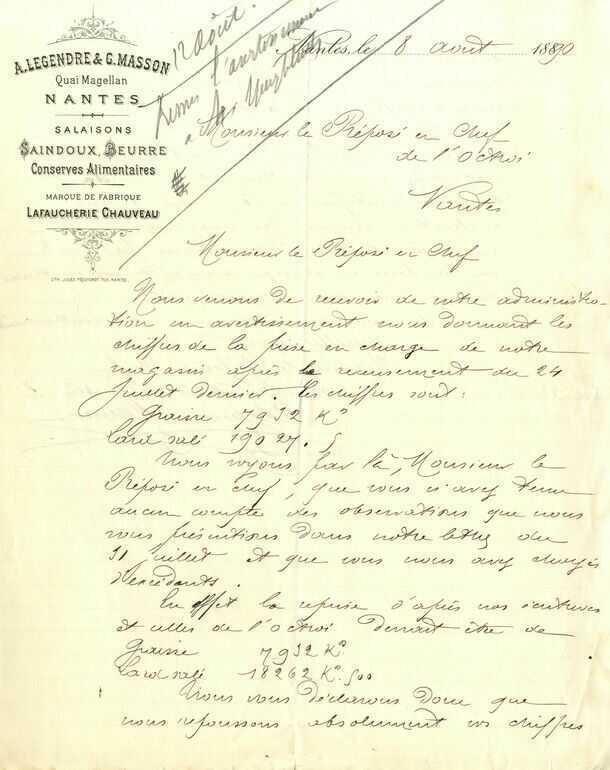 A. LEGENDRE & G. MASSON
Quai Magellan
NANTES
SALAISONS
SAINDOUX, BEURRE
Conserves Alimentaires
MARQUE DE FABRIQUE
LAFAUCHERIE CHAUVEAU
12 Août.
l'avertissement
à Mr
Nantes, le 8 août 1890
Monsieur le Préposé en Chef
de l'Octroi
Nantes
Monsieur le Préposé en Chef
Nous venons de recevoir de votre administra-
tion un avertissement nous donnant les
chiffres de la prise en charge de notre
magasin après le recensement du 24
Juillet dernier. Les chiffres sont:
Graisse 7932 Kos
Lard salé 19027. 5
Nous voyons par là, Monsieur le
Préposé en Chef, que vous n'avez tenu
aucun compte des observations que nous
vous présentions dans notre lettre du
31 juillet et que vous nous avez chargés
d'excédants.
En effet la reprise d'après nos
et celles de l'octroi devrait être de
Graisse 7932 Kos
Lard salé 18262 Kos. 500
Nous vous déclarons donc que
nous repoussons absolument vos chiffres